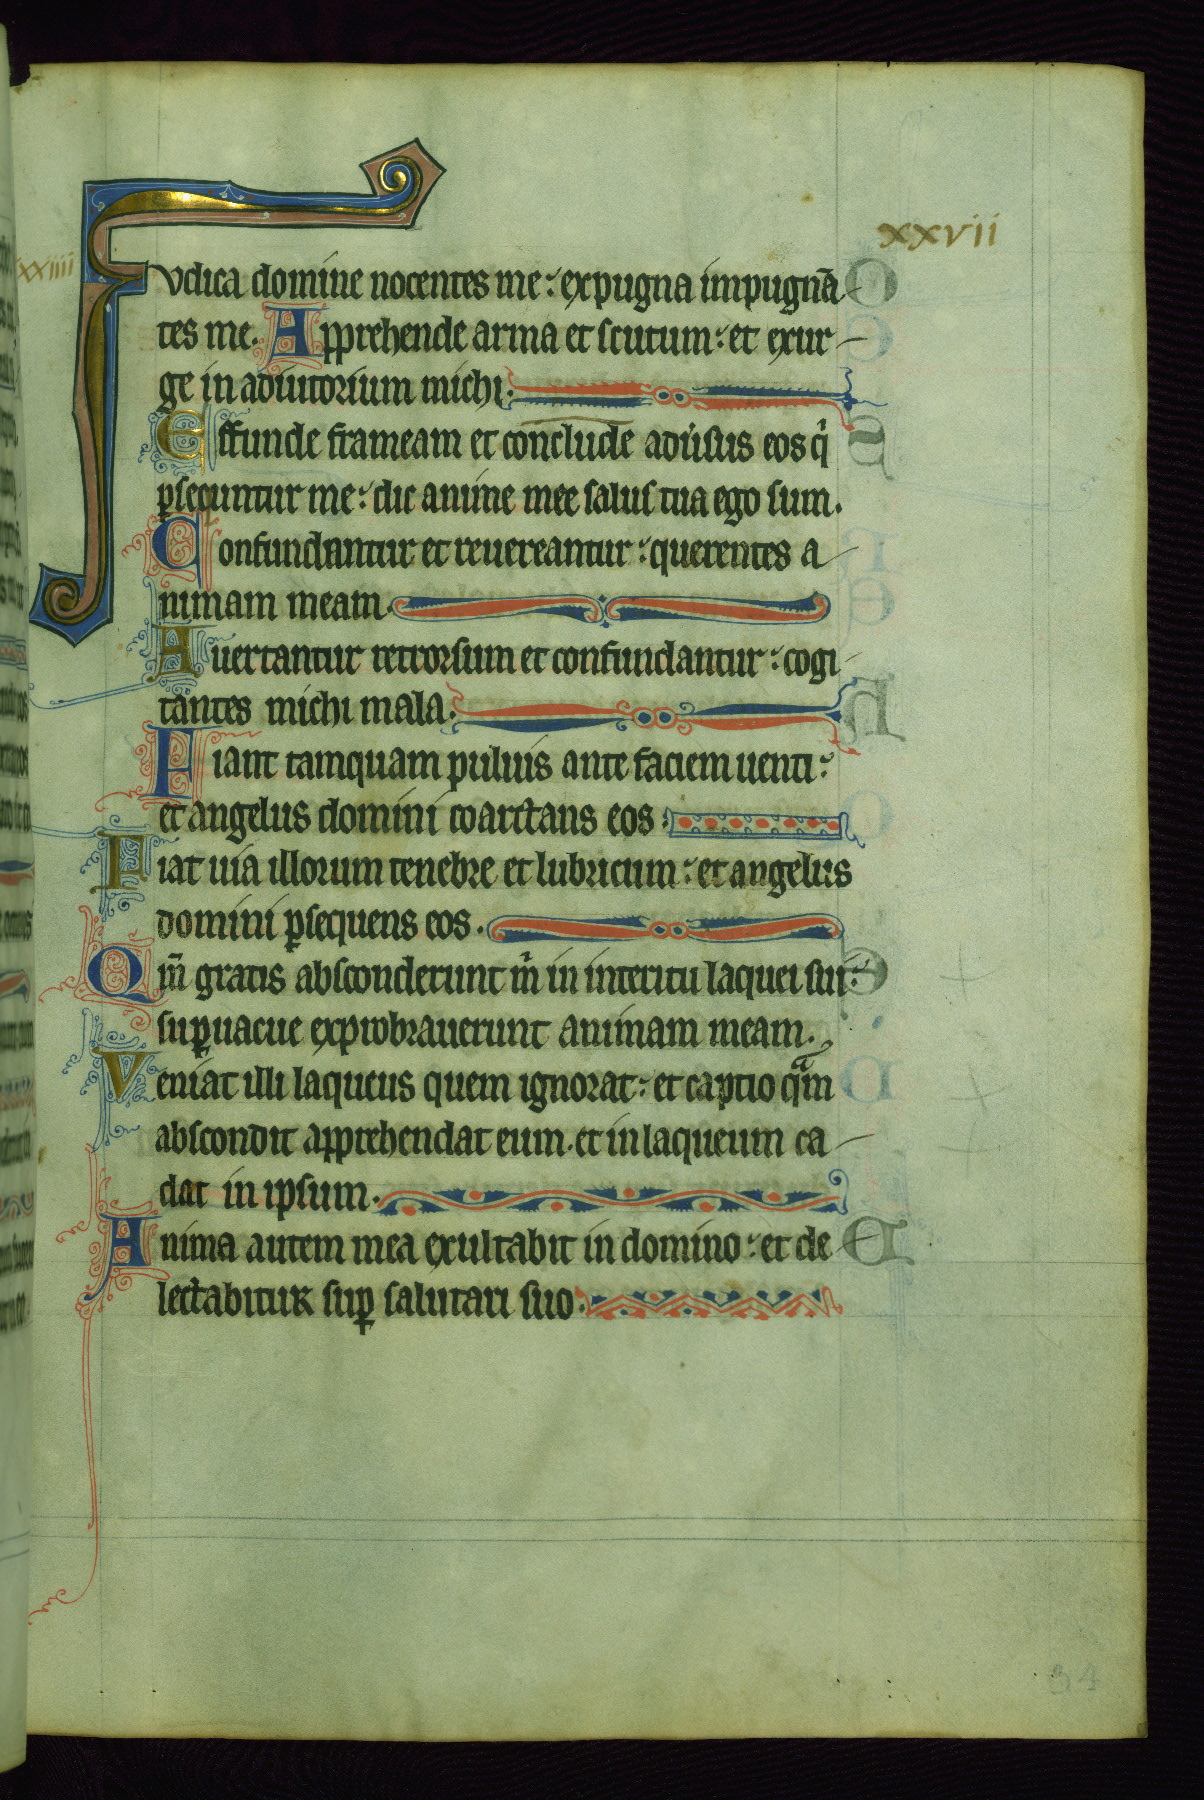 xxvii
xxiiii
Iudica domine nocentes me: expugna impugnā
tes me. Apprehende arma et scutum: et exur
ge in adiutorium michi.
Effunde frameam et conclude adũsus eos q̇
ꝑsecuntur me: dic anime mee salus tua ego sum.
Confundantur et reuereantur: querentes a
nimam meam.
Auertantur retrorsum et confundantur: cogi
tantes michi mala.
Fiant tamquam puluis ante faciem uenti:
et angelus domini coarctans eos.
Fiat uia illorum tenebre et lubricum: et angelus
domini ꝑsequens eos.
Qm̄ gratis absconderunt m̄ in interitu laquei sui:
suꝑuacue exprobrauerunt animam meam.
Veniat illi laqueus quem ignorat: et captio qᵃm
abscondit apprehendat eum. et in laqueum ca
dat in ipsum.
Anima autem mea exultabit in domino: et de
lectabitur suꝑ salutari suo.
34